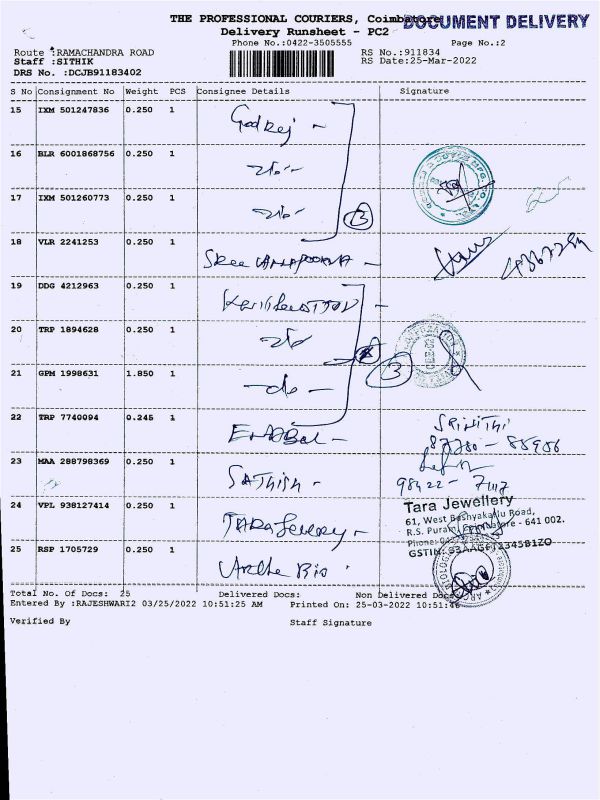 THE PROFESSIONAL COURIERS, Coimbatore
DOCUMENT DELIVERY
Delivery Runsheet - PC2
Phone No.:0422-3505555 Page No.:2
Route :RAMACHANDRA ROAD RS No.:911834
Staff :SITHIK RS Date:25-Mar-2022
DRS No. :DCJB91183402
S No Consignment No Weight PCS Consignee Details Signature
15 IXM 501247836 0.250 1 Godrej
16 BLR 6001868756 0.250 1
17 IXM 501260773 0.250 1 3
18 VLR 2241253 0.250 1 Sree
19 DDG 4212963 0.250 1
20 TRP 1894628 0.250 1
21 GPM 1998631 1.850 1 -do- 3
22 TRP 7740094 0.245 1 SRINITHI
23 MAA 288798369 0.250 1 SATHISH -
98422- 7117
24 VPL 938127414 0.250 1 TARA Jewellery - Tara Jewellery
61, West Bashyakarlu Road,
R.S. Puram, Coimbatore - 641 002.
Phone:
GSTIN: 33AAGFT2345B1ZO
25 RSP 1705729 0.250 1
Total No. Of Docs: 25 Delivered Docs: Non Delivered Docs:
Entered By :RAJESHWARI2 03/25/2022 10:51:25 AM Printed On: 25-03-2022 10:51:46
Verified By Staff Signature